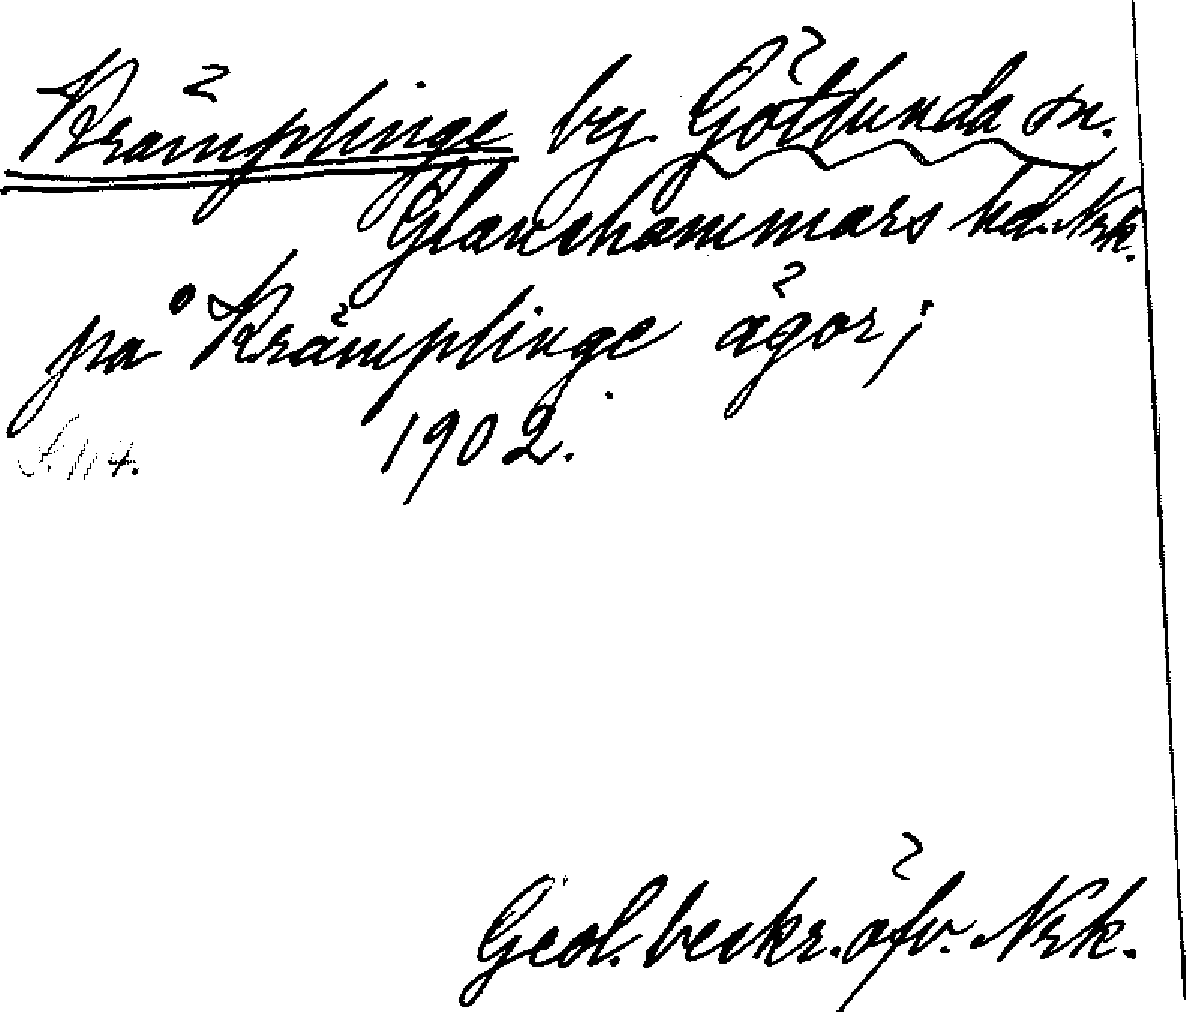 Krämplinge by. Götlunda sn.
Glanshammars hd. Nrk.
på Krämplinge ägor;
1902.
S. 114.
Geol. beskr. öfv. Nrk.